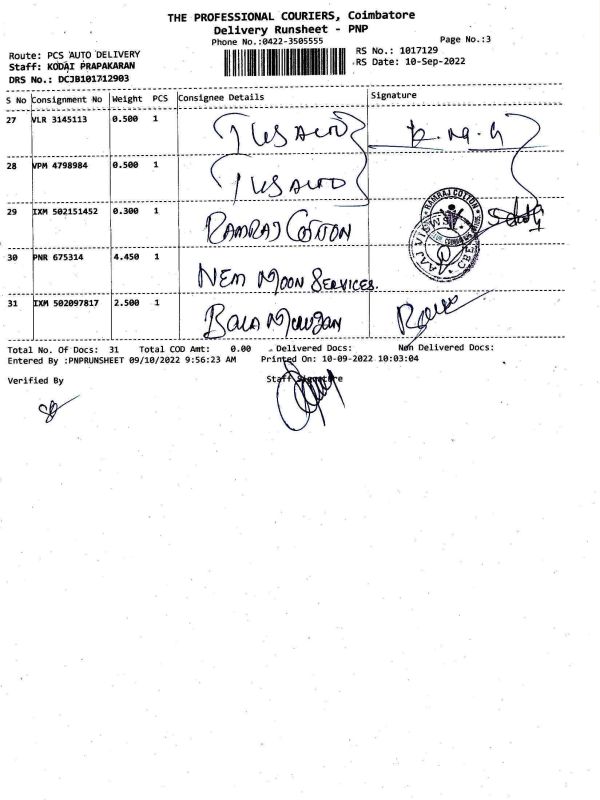 THE PROFESSIONAL COURIERS, Coimbatore
Delivery Runsheet - PNP
Phone No.:0422-3505555
Page No.:3
Route: PCS AUTO DELIVERY
RS No.: 1017129
Staff: KODAI PRAPAKARAN
RS Date: 10-Sep-2022
DRS No.: DCJB101712903
S No Consignment No Weight PCS Consignee Details Signature
27 VLR 3145113 0.500 1
28 VPM 4798984 0.500 1
29 IXM 502151452 0.300 1 RAMRAJ COTTON
RAMRAJ COTTON
30 PNR 675314 4.450 1 NEM MOON SERVICES.
31 IXM 502097817 2.500 1 BALA MURUGAN
Total No. Of Docs: 31 Total COD Amt: 0.00 Delivered Docs: Non Delivered Docs:
Entered By :PNPRUNSHEET 09/10/2022 9:56:23 AM Printed On: 10-09-2022 10:03:04
Verified By Staff Signature